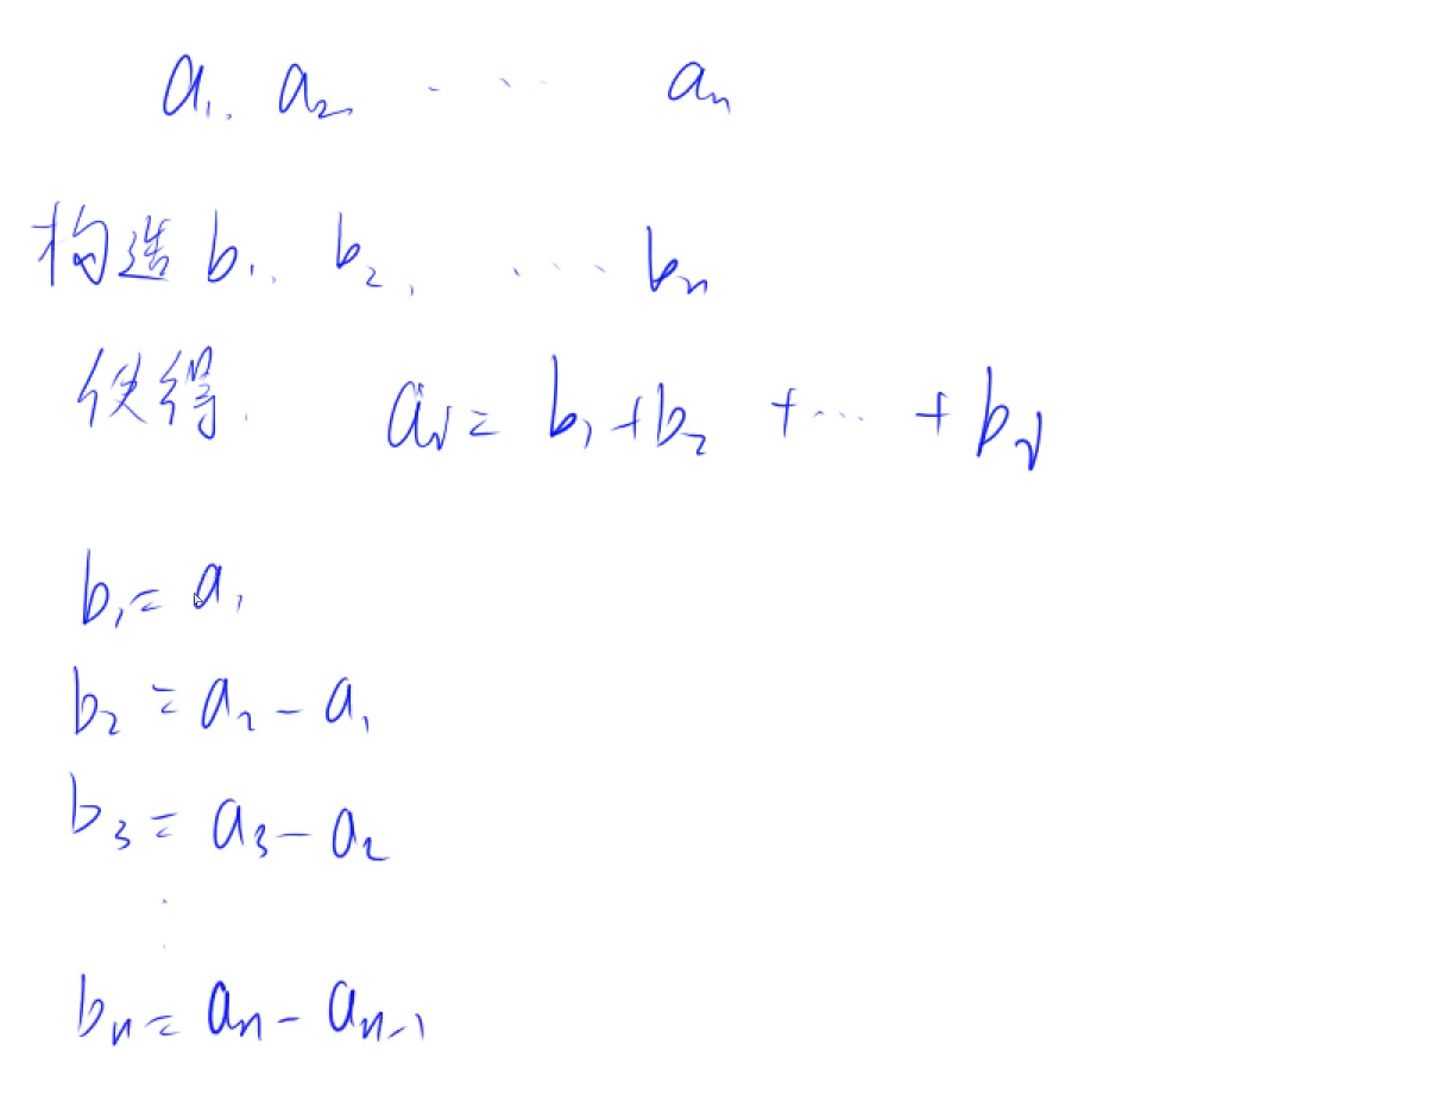 a₁, a₂ ··· aₙ
构造 b₁, b₂, ··· bₙ
使得. aᵢ = b₁ + b₂ + ··· + bᵢ
b₁ = a₁
b₂ = a₂ - a₁
b₃ = a₃ - a₂
:
bₙ = aₙ - aₙ₋₁